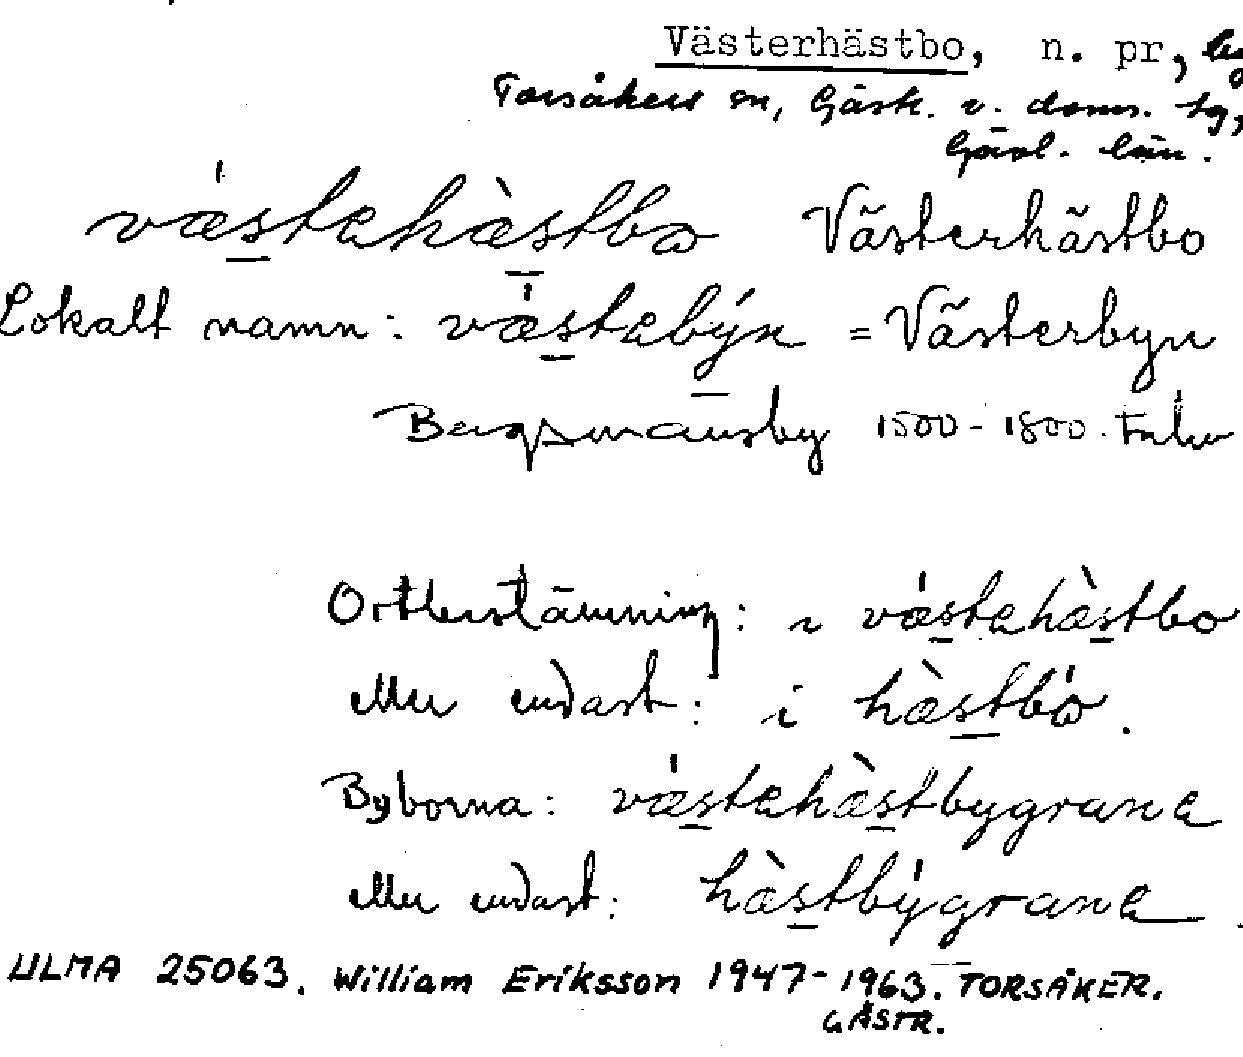 Västerhästbo, n. pr, by
Torsåkers sn, Gästr. v. doms. tg,
Gävl. län.
västəhästbo Västerhästbo
Lokalt namn: västəbyn = Västerbyn
Bergsmansby 1500-1800.
Ortbestämning: i västəhästbo
eller endast: i hästbo.
Byborna: västəhästbygranə
eller endast: hästbygranə.
ULMA 25063. William Eriksson 1947-1963. TORSÅKER.
GÄSTR.